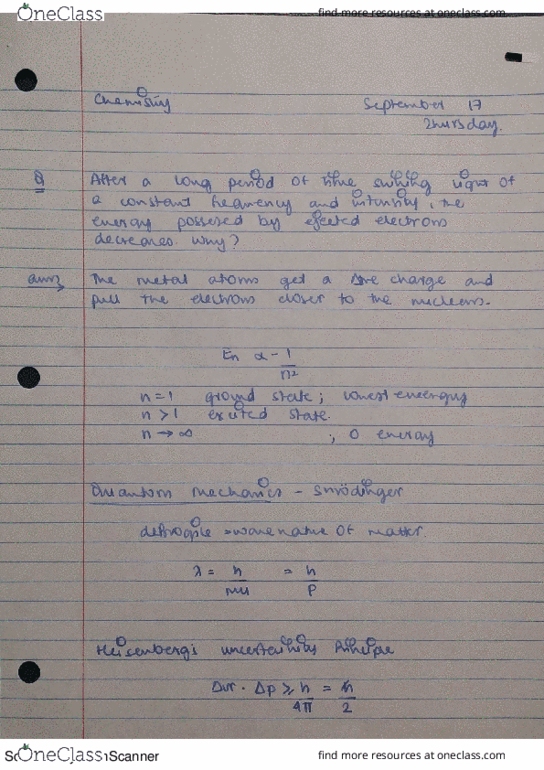 OneClass find more resources at oneclass.com
Chemistry September 17
Thursday.
Q After a long period of time shining light of
a constant frequency and intensity, the
energy possessed by ejected electrons
decreases. Why?
ans → The metal atoms get a +ve charge and
pull the electrons closer to the nucleus.
En α - 1/n²
n=1 ground state; lowest energy
n>1 excited state.
n→∞ ; 0 energy
Quantum mechanics - Schrödinger
debroglie → wave nature of matter.
λ = h/mu = h/p
Heisenberg's uncertainty Principle
Δx · Δp ≥ h/4π = ħ/2
OneClass Scanner find more resources at oneclass.com